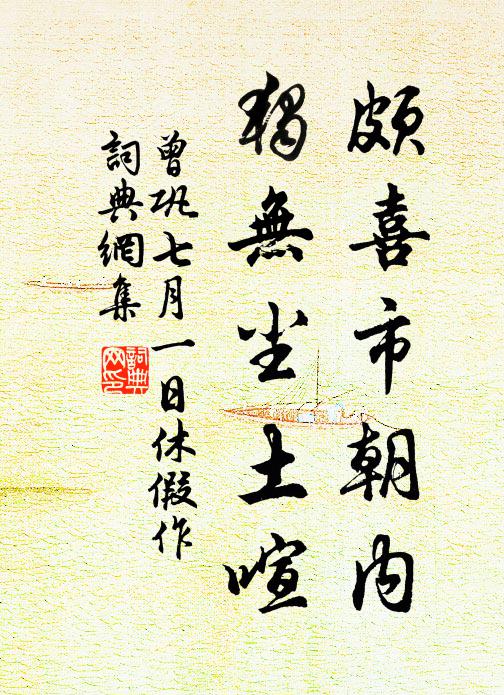 頗喜市朝内
獨無尘土喧
曾巩七月一日休假作
詞典網集
詞典网印